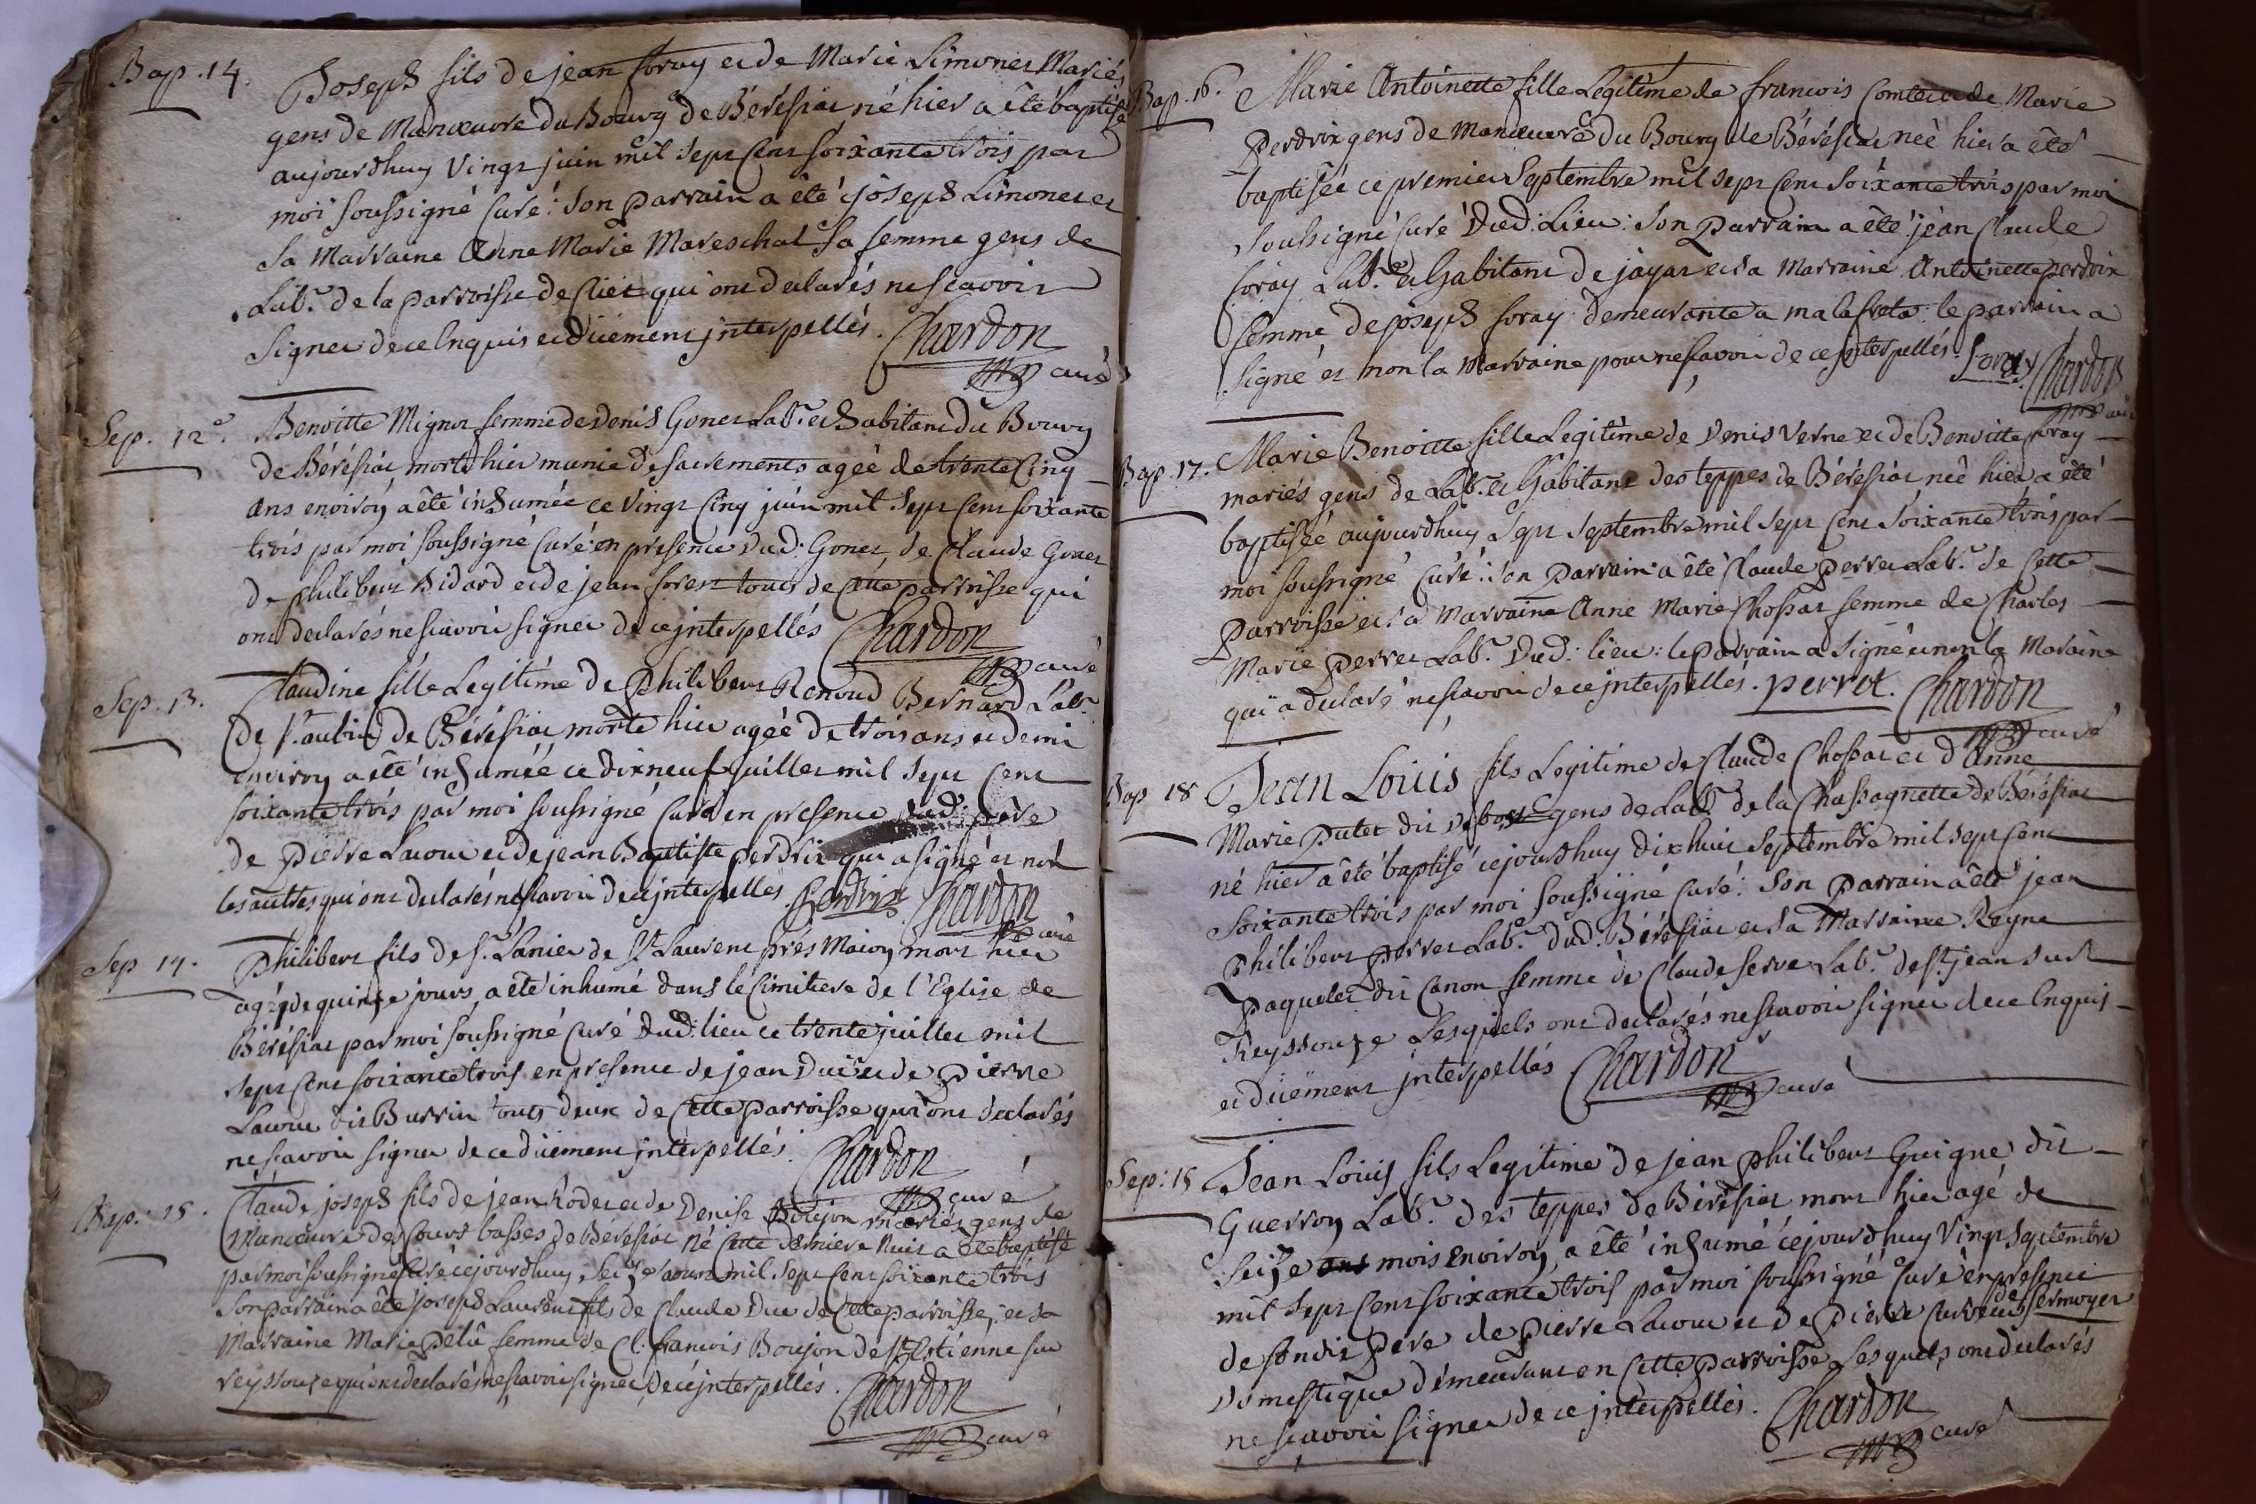 Bap. 14.
Joseph fils de jean foray et de Marie Limonet Mariés
gens de Manœuvre du Bourg de Béréziat né hier a été baptisé
aujourdhuy Vingt juin mil sept Cent soixante trois par
moi soussigné Curé : son parrain a été joseph Limonet et
sa Marraine Anne Marie Mareschal sa femme gens de
Labr. de la parroisse de qui ont declarés ne scavoir
signer de ce Enquis et düement jnterpellés. Chardon
curé
Sep. 12e.
Benoitte Mignot femme de Denis Gonet Labr. et habitant du Bourg
de Béréziat morte hier munie des sacrements agée de trente Cinq
ans environ, a été inhumée ce Vingt Cinq juin mil sept Cent soixante
trois par moi soussigné Curé en presence dud: Gonet, de Claude Gonet
de philibert Bidard et de jean forest touts de Cette parroisse qui
ont declarés ne scavoir signer de ce jnterpellés Chardon
curé
Sep. 13.
Claudine fille Legitime de philibert Renoud Bernard Labr.
de St. aubin de Béréziat morte hier agée de trois ans et demi
environ a été inhumée ce dixneuf juillet mil sept Cent
soixante trois par moi soussigné Curé en presence dud: père
de pierre Lacour et de jean Baptiste perdrix qui a signé et non
les autres qui ont declarés ne scavoir de ce jnterpellés. Perdrix Chardon
curé
Sep 14.
Philibert fils de sr. Lanier de St. Laurent près Macon mort hier
agé de quinze jours, a été inhumé dans le Cimitiere de l'Eglise de
Béréziat par moi soussigné Curé dud: lieu ce trente juillet mil
sept Cent soixante trois en presence de jean Duc et de pierre
Lacour dit Burrin touts deux de Cette parroisse qui ont declarés
ne scavoir signer de ce düement jnterpellés. Chardon
curé
Bap. 15.
Claude joseph fils de jean Rodet et de Denise Boujon mariés gens de
Manœuvre des Cours basses de Béréziat né Cette derniere Nuit a été baptisé
par moi soussigné Curé cejourdhuy seize aoust mil sept Cent soixante trois
son parrain a été joseph Laurent fils de Claude Duc de Cette parroisse, et sa
Marraine Marie femme de Cl: francois Boujon de St. Estienne sur
reyssouze qui ont declarés ne scavoir signer, de ce jnterpellés. Chardon
curé
Bap. 16.
Marie Antoinette fille Legitime de francois Comte et de Marie
perdrix gens de Manœuvre du Bourg de Béréziat née hier a été
baptisée ce premier Septembre mil sept Cent soixante trois par moi
soussigné Curé dud: Lieu : son parrain a été jean Claude
foray Labr. et habitant de jayat et sa Marraine Antoinette perdrix
femme de joseph foray demeurante a malafreta : le parrain a
signé et non la Marraine pour ne scavoir de ce jnterpellés. Foray Chardon
curé
Bap. 17.
Marie Benoitte fille Legitime de Denis Verne et de Benoitte foray
mariés gens de Labr. et habitant des teppes de Béréziat née hier a été
baptisée aujourdhuy Sept Septembre mil sept Cent soixante trois par
moi soussigné Curé : son parrain a été Claude perret Labr. de Cette
parroisse et sa Marraine Anne Marie Chossat femme de Charles
Marie perret Labr. dud: lieu : le parrain a signé et non la Maraine
qui a declaré ne scavoir de ce jnterpellés. perret. Chardon
curé
Bap 18
Jean Loüis fils Legitime de Claude Chossat et d'Anne
Marie putet dit gens de Labr. de la Chassagnette de Béréziat
né hier a été baptisé cejourdhuy dixhuit septembre mil sept Cent
soixante trois par moi soussigné Curé : son parrain a été jean
philibert perret Labr. dud: Béréziat et sa Marraine Reyne
paquelet dit Canon femme de Claude serve Labr. de St. jean sur
Reyssouze Lesquels ont declarés ne scavoir signer de ce Enquis
et düement jnterpellés Chardon
curé
Sep: 15
Jean Loüis fils Legitime de jean philibert Guigue dit
Guerron Labr. des teppes de Béréziat mort hier agé de
seize ans mois environ, a été inhumé cejourdhuy Vingt septembre
mil sept Cent soixante trois par moi soussigné Curé en presence
de sondit père de pierre Lacour et de pierre de sermoyer
domestique demeurant en Cette parroisse Lesquels ont declarés
ne scavoir signer de ce jnterpellés. Chardon
curé